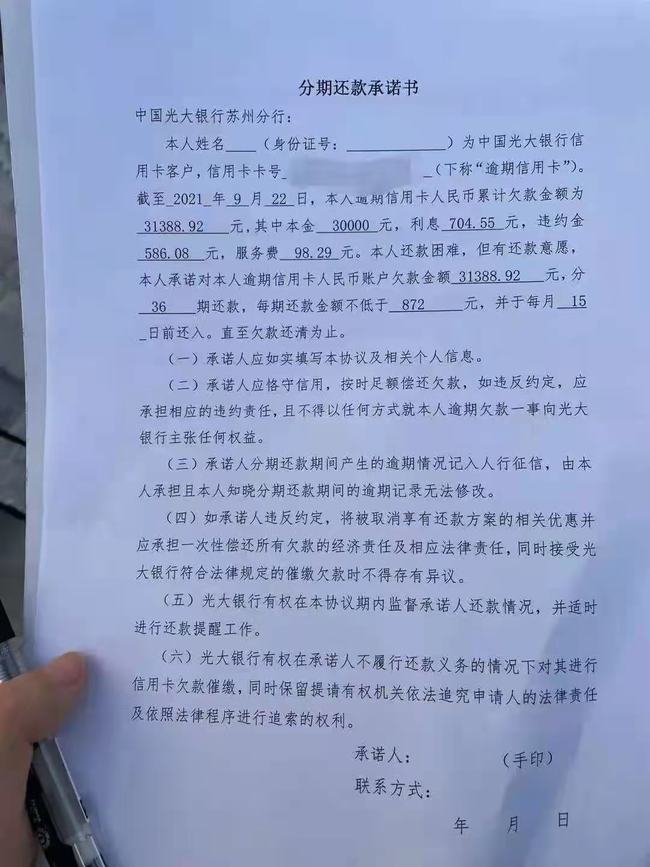 分期还款承诺书
中国光大银行苏州分行：
本人姓名____（身份证号：____________）为中国光大银行信
用卡客户，信用卡卡号_ _（下称“逾期信用卡”）。
截至 2021 年 9 月 22 日，本人逾期信用卡人民币累计欠款金额为
31388.92 元，其中本金 30000 元，利息 704.55 元，违约金
586.08 元，服务费 98.29 元。本人还款困难，但有还款意愿，
本人承诺对本人逾期信用卡人民币账户欠款金额 31388.92 元，分
36 期还款，每期还款金额不低于 872 元，并于每月 15
_日前还入。直至欠款还清为止。
（一）承诺人应如实填写本协议及相关个人信息。
（二）承诺人应恪守信用，按时足额偿还欠款，如违反约定，应
承担相应的违约责任，且不得以任何方式就本人逾期欠款一事向光大
银行主张任何权益。
（三）承诺人分期还款期间产生的逾期情况记入人行征信，由本
人承担且本人知晓分期还款期间的逾期记录无法修改。
（四）如承诺人违反约定，将被取消享有还款方案的相关优惠并
应承担一次性偿还所有欠款的经济责任及相应法律责任，同时接受光
大银行符合法律规定的催缴欠款时不得存有异议。
（五）光大银行有权在本协议期内监督承诺人还款情况，并适时
进行还款提醒工作。
（六）光大银行有权在承诺人不履行还款义务的情况下对其进行
信用卡欠款催缴，同时保留提请有权机关依法追究申请人的法律责任
及依照法律程序进行追索的权利。
承诺人： （手印）
联系方式：
年 月 日